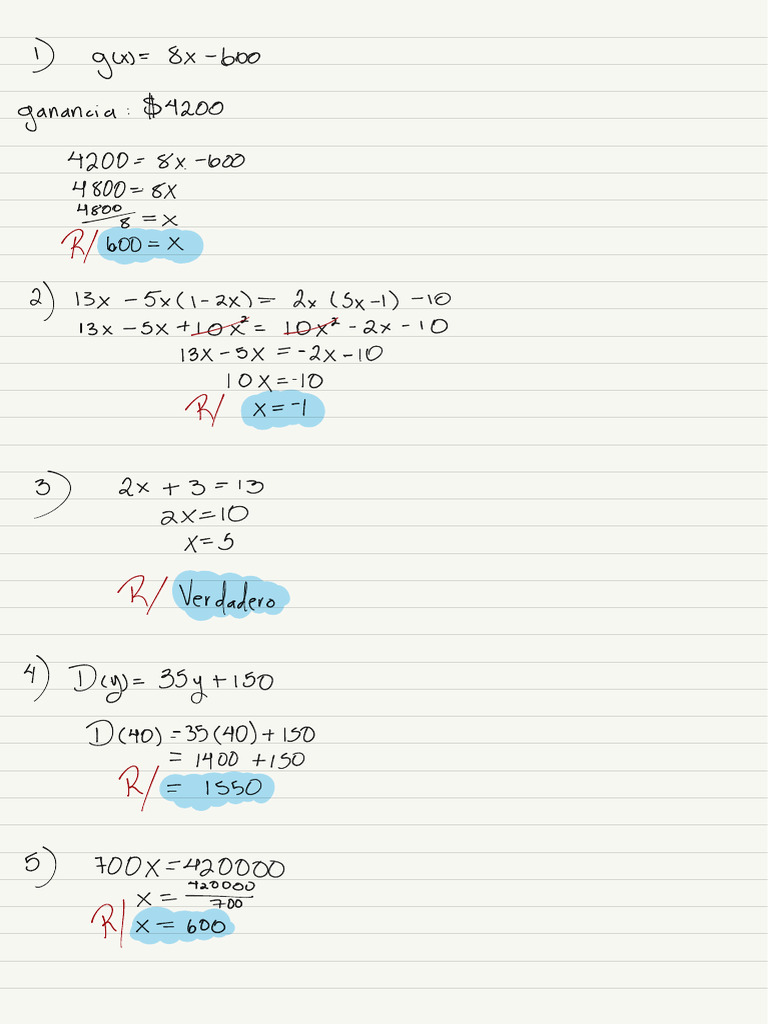 1) g(x) = 8x - 600
ganancia: $4200
4200 = 8x - 600
4800 = 8x
4800/8 = x
R/ 600 = x
2) 13x - 5x(1-2x) = 2x(5x-1) - 10
13x - 5x + 10x² = 10x² - 2x - 10
13x - 5x = -2x - 10
10x = -10
R/ x = -1
3) 2x + 3 = 13
2x = 10
x = 5
R/ Verdadero
4) D(y) = 35y + 150
D(40) = 35(40) + 150
= 1400 + 150
R/ = 1550
5) 700x = 420000
x = 420000/700
R/ x = 600